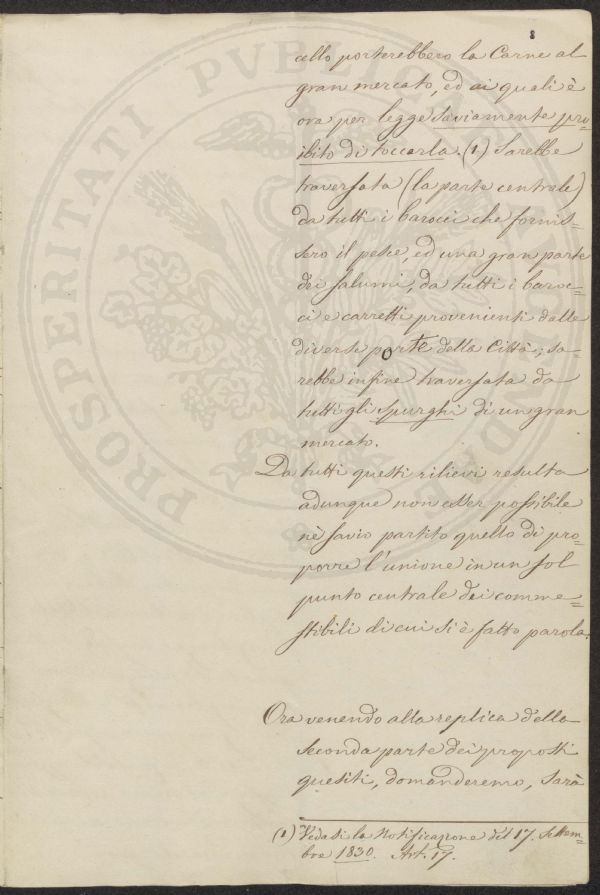 8
cello porterebbero la Carne al
gran mercato, ed ai quali è
ora per legge saviamente pro=
ibito di toccarla. (1) Sarebbe
traversata (la parte centrale)
da tutti i barocci che fornis=
sero il pesce, ed una gran parte
dei salumi, da tutti i baroc=
ci e carretti provenienti dalle
diverse porte della Città; sa=
rebbe infine traversata da
tutti gli spurghi di un gran
mercato.
Da tutti questi rilievi resulta
adunque non esser possibile
nè savio partito quello di pro=
porre l'unione in un sol
punto centrale dei comme=
stibili di cui si è fatto parola.
Ora venendo alla replica della
seconda parte dei proposti
quesiti, domanderemo, sarà
(1) Vedasi la Notificazione del 17. Settem=
bre 1830. Art. 17.
PROSPERITATI PVBLICAE